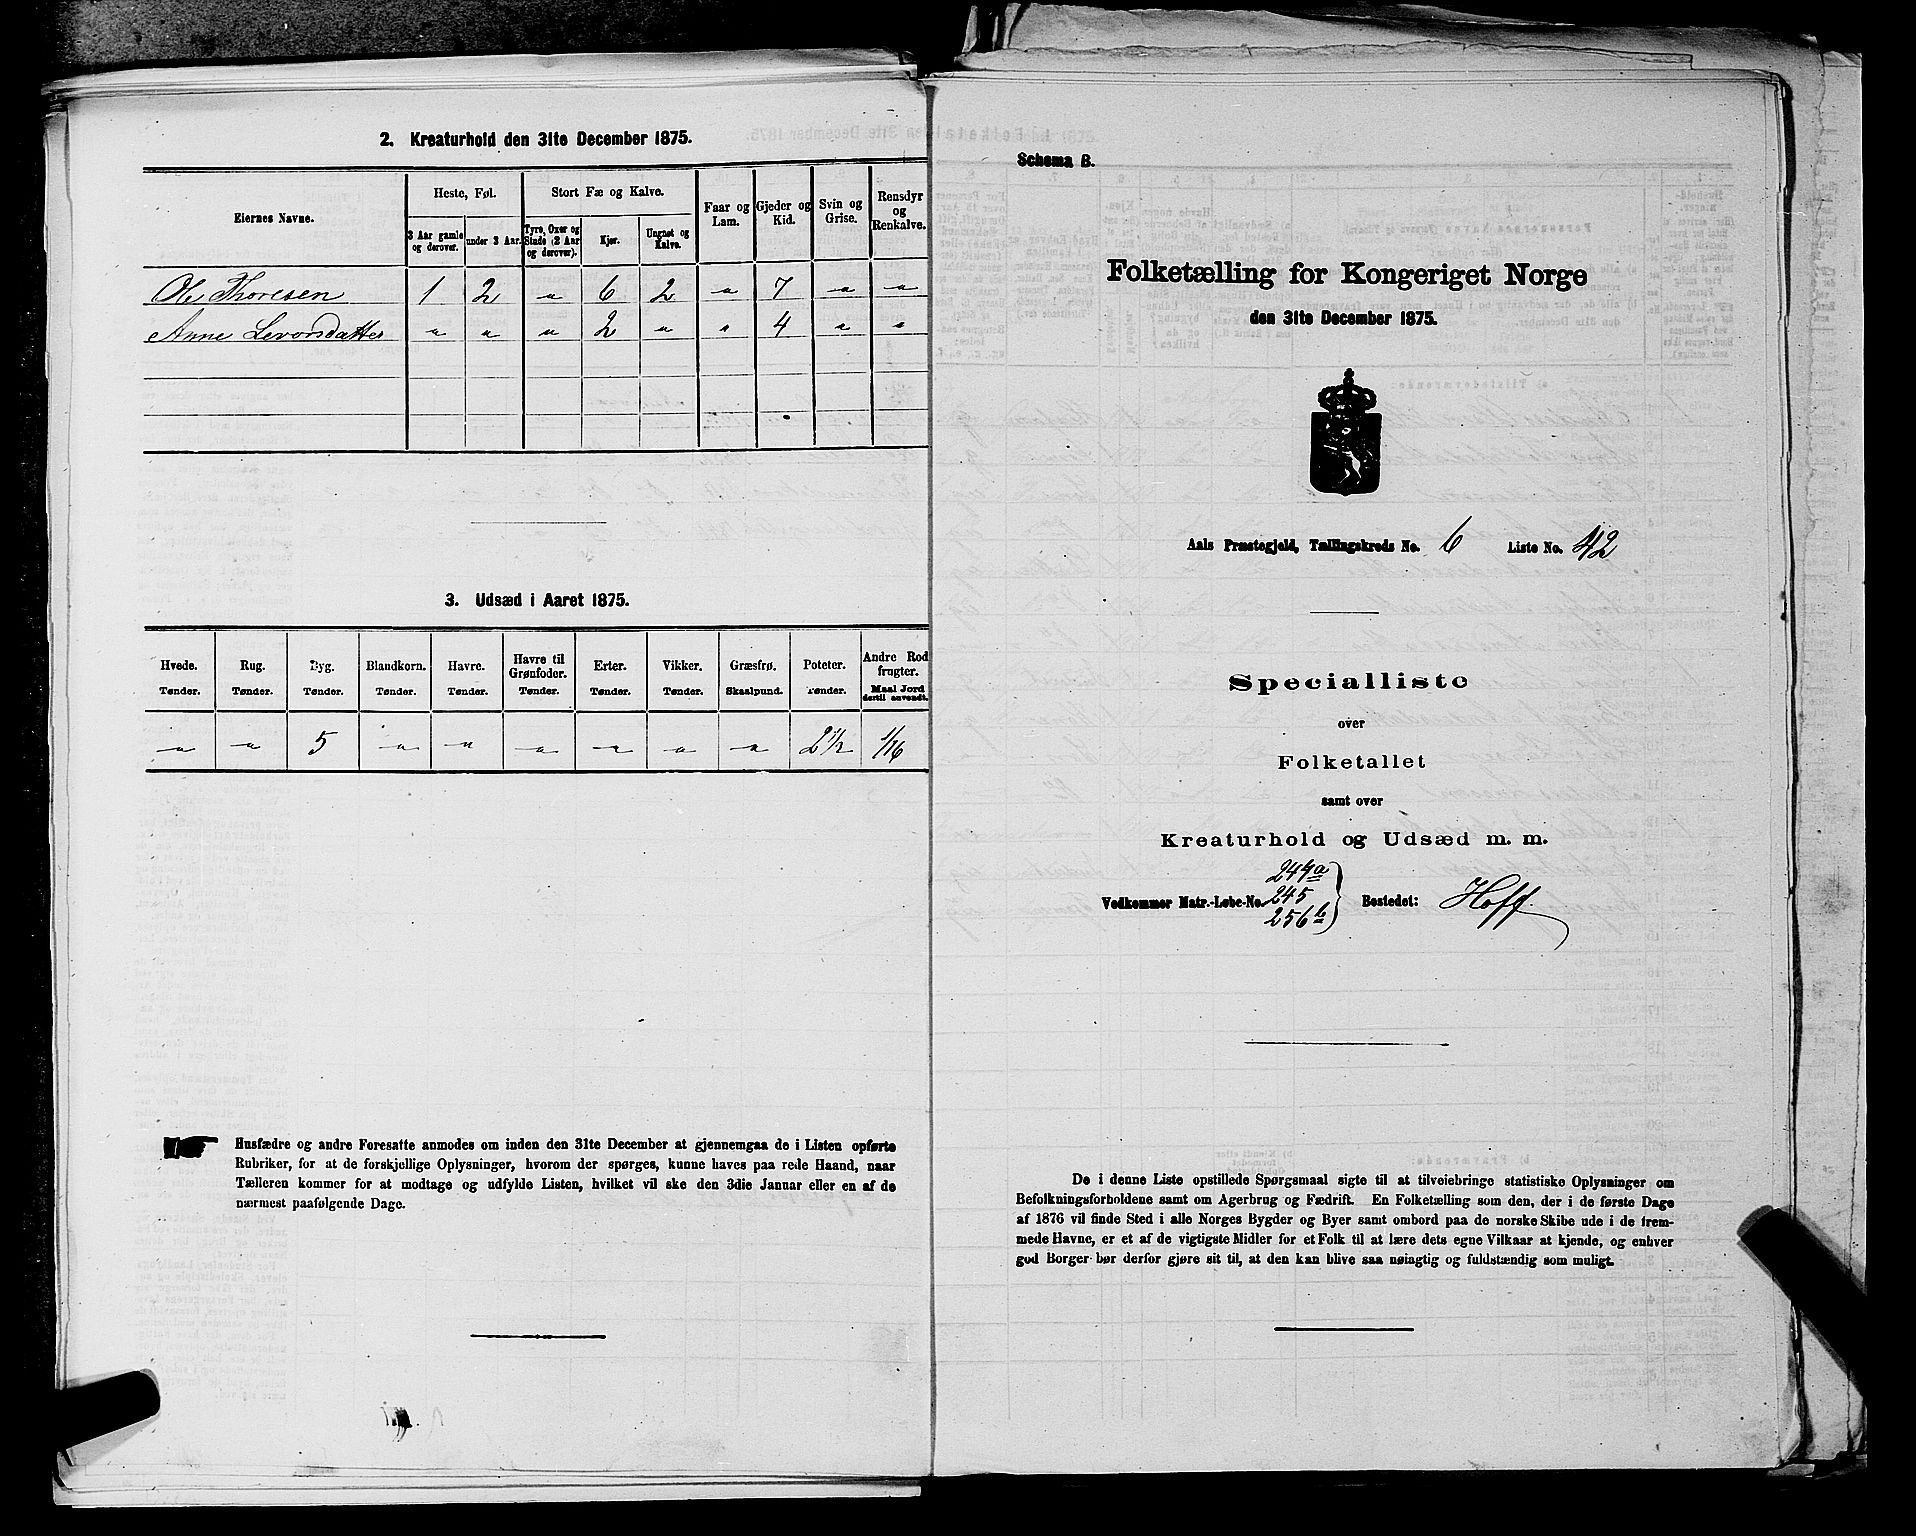 2. Kreaturhold den 31te December 1875.
Eiernes Navne.
Heste, Føl.
3 Aar gamle og derover.
under 3 Aar.
Stort Fæ og Kalve.
Tyre, Oxer og Stude (2 Aar og derover).
Kjør.
Ungnøt og Kalve.
Faar og Lam.
Gjeder og Kid.
Svin og Grise.
Rensdyr og Renkalve.
Ole Thoresen 1 2 " 6 2 " 7 " "
Anne Levorsdatter " " " 2 " " 4 " "
3. Udsæd i Aaret 1875.
Hvede. Rug. Byg. Blandkorn. Havre. Havre til Grønfoder. Erter. Vikker. Græsfrø. Poteter. Andre Rodfrugter.
Tønder. Tønder. Tønder. Tønder. Tønder. Tønder. Tønder. Tønder. Skaalpund. Tønder. Maal Jord dertil anvendt.
" " 5 " " " " " " 2 1/2 1/16
Husfædre og andre Foresatte anmodes om inden den 31te December at gjennemgaa de i Listen opførte
Rubriker, for at de forskjellige Oplysninger, hvorom der spørges, kunne haves paa rede Haand, naar
Tælleren kommer for at modtage og udfylde Listen, hvilket vil ske den 3die Januar eller en af de
nærmest paafølgende Dage.
Schema B.
Folketælling for Kongeriget Norge
den 31te December 1875.
Aals Præstegjeld, Tællingskreds No. 6 Liste No. 42
Specialliste
over
Folketallet
samt over
Kreaturhold og Udsæd m. m.
244a
Vedkommer Matr.-Løbe-No. 245 Bostedet: Hoff.
256b
De i denne Liste opstillede Spørgsmaal sigte til at tilveiebringe statistiske Oplysninger om
Befolkningsforholdene samt om Agerbrug og Fædrift. En Folketælling som den, der i de første Dage
af 1876 vil finde Sted i alle Norges Bygder og Byer samt ombord paa de norske Skibe ude i de frem-
mede Havne, er et af de vigtigste Midler for et Folk til at lære dets egne Vilkaar at kjende, og enhver
god Borger bør derfor gjøre sit til, at den kan blive saa nøiagtig og fuldstændig som muligt.